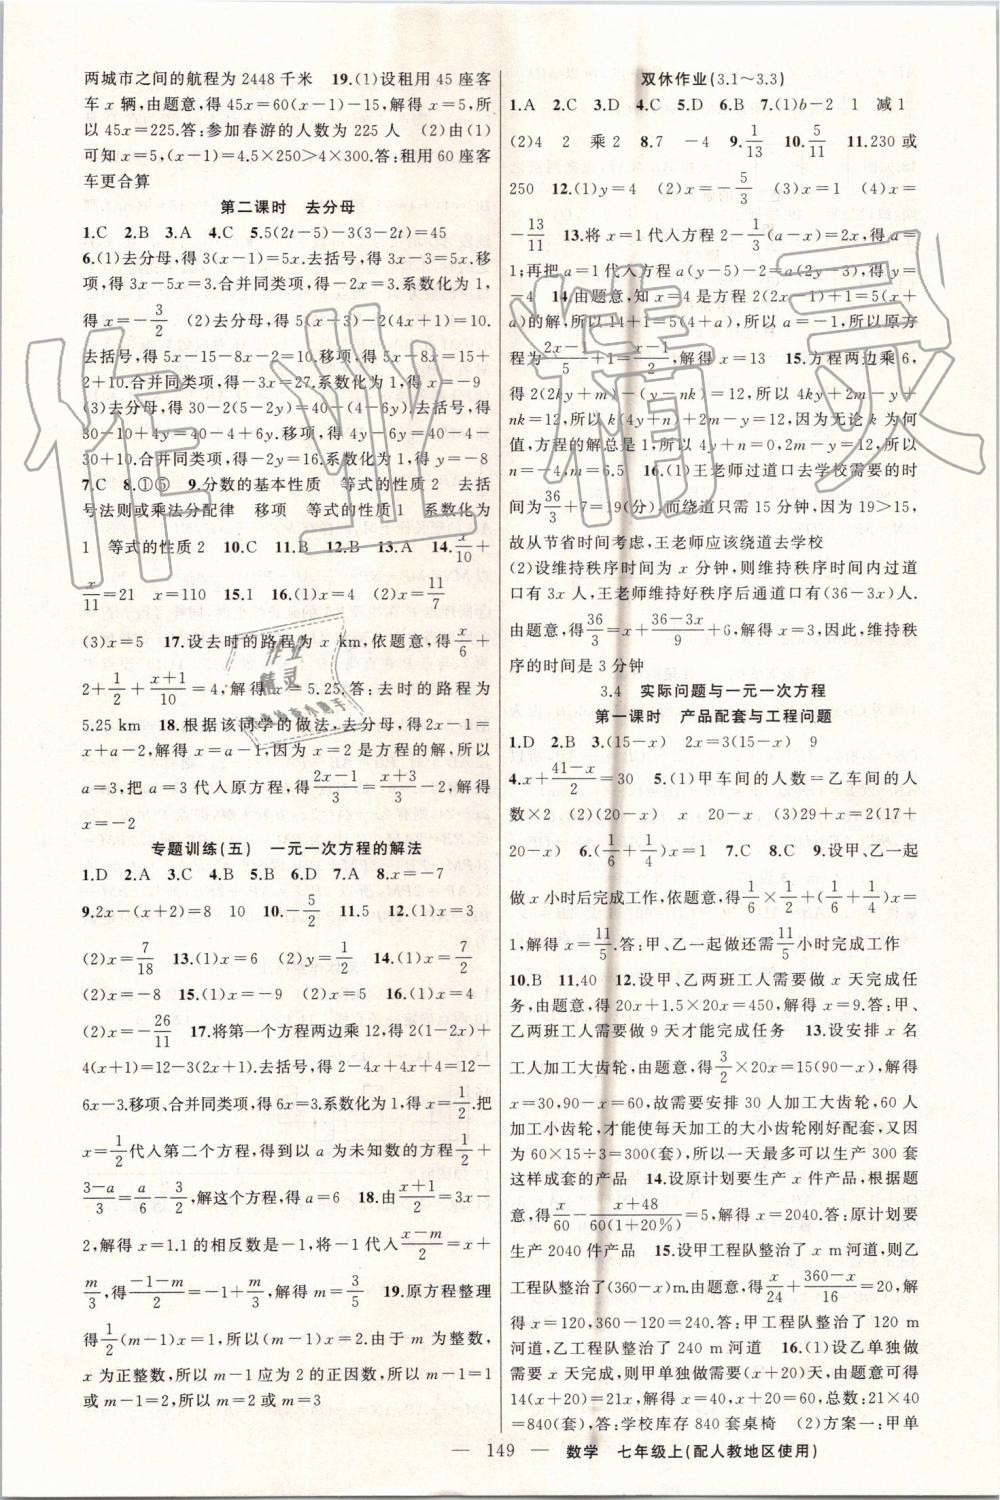 两城市之间的航程为 2448 千米　19.(1)设租用 45 座客
车 x 辆,由题意,得 45x=60(x-1)-15,解得 x=5,所
以 45x=225.答:参加春游的人数为 225 人　(2)由(1)
可知 x=5,(x-1)=4.5×250>4×300.答:租用 60 座客
车更合算
第二课时　去分母
1.C　2.B　3.A　4.C　5.5(2t-5)-3(3-2t)=45
6.(1)去分母,得 3(x-1)=5x.去括号,得 3x-3=5x.移
项,得 3x-5x=3.合并同类项,得-2x=3.系数化为 1,
得 x=-3/2　(2)去分母,得 5(x-3)-2(4x+1)=10.
去括号,得 5x-15-8x-2=10.移项,得 5x-8x=15+
2+10.合并同类项,得-3x=27.系数化为 1,得 x=-9
(3)去分母,得 30-2(5-2y)=40-(4-6y).去括号,得
30-10+4y=40-4+6y.移项,得 4y-6y=40-4-
30+10.合并同类项,得-2y=16.系数化为 1,得 y=-8
7.C　8.①⑤　9.分数的基本性质　等式的性质 2　去括
号法则或乘法分配律　移项　等式的性质 1　系数化为
1　等式的性质 2　10.C　11.B　12.B　13.A　14.x/10+
x/11=21　x=110　15.1　16.(1)x=4　(2)x=11/7
(3)x=5　17.设去时的路程为 x km,依题意,得x/6+
2+1/2+(x+1)/10=4,解得 x=5.25.答:去时的路程为
5.25 km　18.根据该同学的做法,去分母,得 2x-1=
x+a-2,解得 x=a-1,因为 x=2 是方程的解,所以
a=3,把 a=3 代入原方程,得(2x-1)/3=(x+3)/3-2,解得
x=-2
专题训练(五)　一元一次方程的解法
1.D　2.A　3.C　4.B　5.B　6.D　7.A　8.x=-7
9.2x-(x+2)=8　10　10.-5/2　11.5　12.(1)x=3
(2)x=7/18　13.(1)x=6　(2)y=1/2　14.(1)x=7/2
(2)x=-8　15.(1)x=-9　(2)x=5　16.(1)x=4
(2)x=-26/11　17.将第一个方程两边乘 12,得 2(1-2x)+
4(x+1)=12-3(2x+1).去括号,得 2-4x+4x+4=12-
6x-3.移项、合并同类项,得 6x=3.系数化为 1,得 x=1/2.把
x=1/2代入第二个方程,得到以 a 为未知数的方程1/2+
(3-a)/3=a/6-3/2,解这个方程,得 a=6　18.由(x+1)/2=3x-
2,解得 x=1.1 的相反数是-1,将-1 代入(x-m)/2=x+
m/3,得(-1-m)/2=-1+m/3,解得 m=3/5　19.原方程整理
得1/2(m-1)x=1,所以(m-1)x=2.由于 m 为整数,
x 为正整数,所以 m-1 应为 2 的正因数,所以 m-1=1
或 m-1=2,所以 m=2 或 m=3
双休作业(3.1～3.3)
1.A　2.C　3.D　4.C　5.D　6.B　7.(1)b-2　1　减 1
(2)4　2　乘 2　8.7　-4　9.1/13　10.5/11　11.230 或
250　12.(1)y=4　(2)x=-5/3　(3)x=1　(4)x=
-13/11　13.将 x=1 代入方程 2-1/3(a-x)=2x,得 a=
1;再把 a=1 代入方程 a(y-5)-2=a(2y-3),得 y=
-4　14.由题意,知 x=4 是方程 2(2x-1)+1=5(x+
a)的解,所以 14+1=5(4+a),所以 a=-1,所以原方
程为(2x-1)/5+1=(x-1)/2,解得 x=13　15.方程两边乘 6,
得 2(2ky+m)-(y-nk)=12,所以 4ky+2m-y+
nk=12,所以 k(4y+n)+2m-y=12,因为无论 k 为何
值,方程的解总是 1,所以 4y+n=0,2m-y=12,所以
n=-4,m=6.5　16.(1)王老师过道口去学校需要的时
间为36/3+7=19(分),而绕道只需 15 分钟,因为 19>15,
故从节省时间考虑,王老师应该绕道去学校
(2)设维持秩序时间为 x 分钟,则维持秩序时间内过道
口有 3x 人,王老师维持好秩序后通过道口有(36-3x)人.
由题意,得36/3=x+(36-3x)/9+6,解得 x=3,因此,维持秩
序的时间是 3 分钟
3.4　实际问题与一元一次方程
第一课时　产品配套与工程问题
1.D　2.B　3.(15-x)　2x=3(15-x)　9
4.x+(41-x)/2=30　5.(1)甲车间的人数=乙车间的人
数×2　(2)(20-x)　x　x　(3)29+x=2(17+
20-x)　6.(1/6+1/4)x=1　7.C　8.C　9.设甲、乙一起
做 x 小时后完成工作,依题意,得1/6×1/2+(1/6+1/4)x=
1,解得 x=11/5.答:甲、乙一起做还需11/5小时完成工作
10.B　11.40　12.设甲、乙两班工人需要做 x 天完成任
务,由题意,得 20x+1.5×20x=450,解得 x=9.答:甲、
乙两班工人需要做 9 天才能完成任务　13.设安排 x 名
工人加工大齿轮,由题意,得3/2×20x=15(90-x),解得
x=30,90-x=60.故需要安排 30 人加工大齿轮,60 人
加工小齿轮,才能使每天加工的大小齿轮刚好配套,又因
为 60×15÷3=300(套),所以一天最多可以生产 300 套
这样成套的产品　14.设原计划要生产 x 件产品,根据题
意,得x/60-(x+48)/60(1+20%)=5,解得 x=2040.答:原计划要
生产 2040 件产品　15.设甲工程队整治了 x m河道,则乙
工程队整治了(360-x)m.由题意,得x/24+(360-x)/16=20,解
得 x=120,360-120=240.答:甲工程队整治了 120 m
河道,乙工程队整治了 240 m　16.(1)设乙单独做需要
x 天完成,则甲单独做需要(x+20)天,由题意可得
14(x+20)=21x,解得 x=40,x+20=60,总数:21×40
=840(套),答:学校库存 840 套桌椅　(2)方案一:甲单
— 149 —　数学　七年级上(配人教地区使用)
作业精灵
作业
精灵